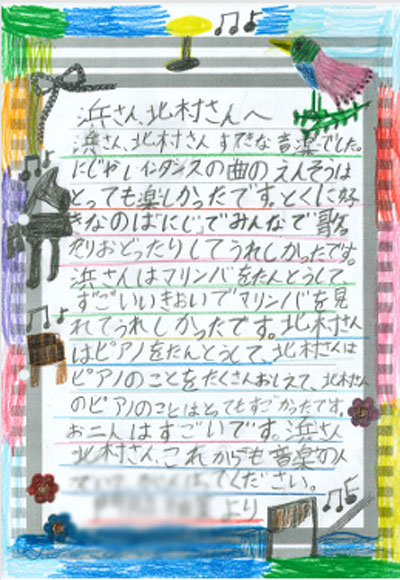 浜さん、北村さんへ
浜さん、北村さんすてきな音楽でした。
にじやしインダンスの曲のえんそうは
とっても楽しかったです。とくに好
きなのは「にじ」でみんなで歌
だりおどったりしてうれしかったです。
浜さんはマリンバをたんとうして、
すごいいきおいでマリンバを見
れてうれしかったです。北村さん
はピアノをたんとうして、北村さんは
ピアノのことをたくさんおしえて、北村さん
のピアノのことはとってもすごかったです。
お二人はすごいです。浜さん
北村さん、これからも音楽の人
でください。
より